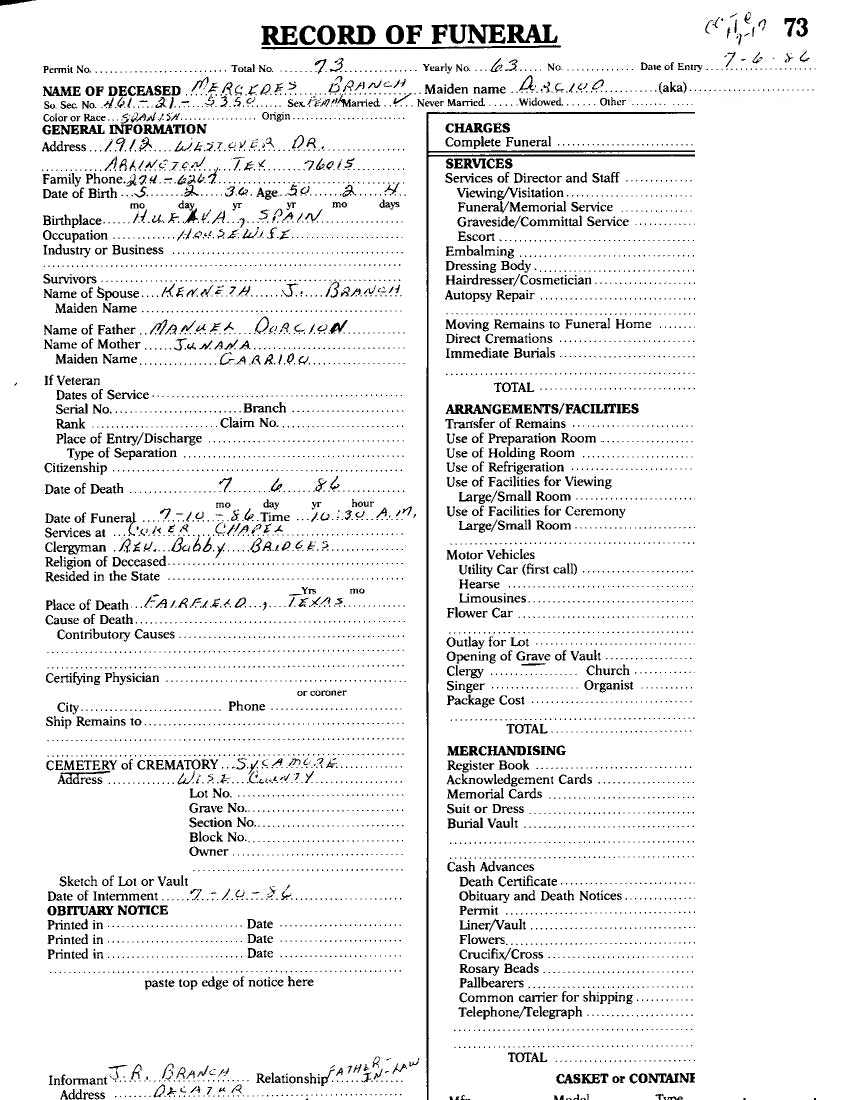 RECORD OF FUNERAL 73
Permit No. Total No. 73 Yearly No. 63 No. Date of Entry 7-6-86
NAME OF DECEASED MERCEDES BRANCH Maiden name (aka)
So. Sec. No. 461-21-5350 Sex FEM Married ✓ Never Married Widowed Other
Color or Race SPANISH Origin
GENERAL INFORMATION
Address 1912 WESTOVER DR.
ARLINGTON, TEX 76015
Family Phone 274-6267
Date of Birth 5 2 36 Age 50 2 4
mo day yr yr mo days
Birthplace HUELVA, SPAIN
Occupation HOUSEWIFE
Industry or Business
Survivors
Name of Spouse KENNETH J. BRANCH
Maiden Name
Name of Father MANUEL
Name of Mother JUNANA
Maiden Name GARRIDO
If Veteran
Dates of Service
Serial No. Branch
Rank Claim No.
Place of Entry/Discharge
Type of Separation
Citizenship
Date of Death 7 6 86
mo day yr hour
Date of Funeral 7-10-86 Time 10:30 A.M.
Services at COKER CHAPEL
Clergyman REV. Bobby BRIDGES
Religion of Deceased
Resided in the State
Yrs mo
Place of Death FAIRFIELD, TEXAS
Cause of Death
Contributory Causes
Certifying Physician
or coroner
City Phone
Ship Remains to
CEMETERY of CREMATORY SYCAMORE
Address WISE COUNTY
Lot No.
Grave No.
Section No.
Block No.
Owner
Sketch of Lot or Vault
Date of Internment 7-10-86
OBITUARY NOTICE
Printed in Date
Printed in Date
Printed in Date
paste top edge of notice here
Informant J.R. BRANCH Relationship FATHER-IN-LAW
Address DECATUR
CHARGES
Complete Funeral
SERVICES
Services of Director and Staff
Viewing/Visitation
Funeral/Memorial Service
Graveside/Committal Service
Escort
Embalming
Dressing Body
Hairdresser/Cosmetician
Autopsy Repair
Moving Remains to Funeral Home
Direct Cremations
Immediate Burials
TOTAL
ARRANGEMENTS/FACILITIES
Transfer of Remains
Use of Preparation Room
Use of Holding Room
Use of Refrigeration
Use of Facilities for Viewing
Large/Small Room
Use of Facilities for Ceremony
Large/Small Room
Motor Vehicles
Utility Car (first call)
Hearse
Limousines
Flower Car
Outlay for Lot
Opening of Grave of Vault
Clergy Church
Singer Organist
Package Cost
TOTAL
MERCHANDISING
Register Book
Acknowledgement Cards
Memorial Cards
Suit or Dress
Burial Vault
Cash Advances
Death Certificate
Obituary and Death Notices
Permit
Liner/Vault
Flowers
Crucifix/Cross
Rosary Beads
Pallbearers
Common carrier for shipping
Telephone/Telegraph
TOTAL
CASKET or CONTAINE
Mfg. Model Type